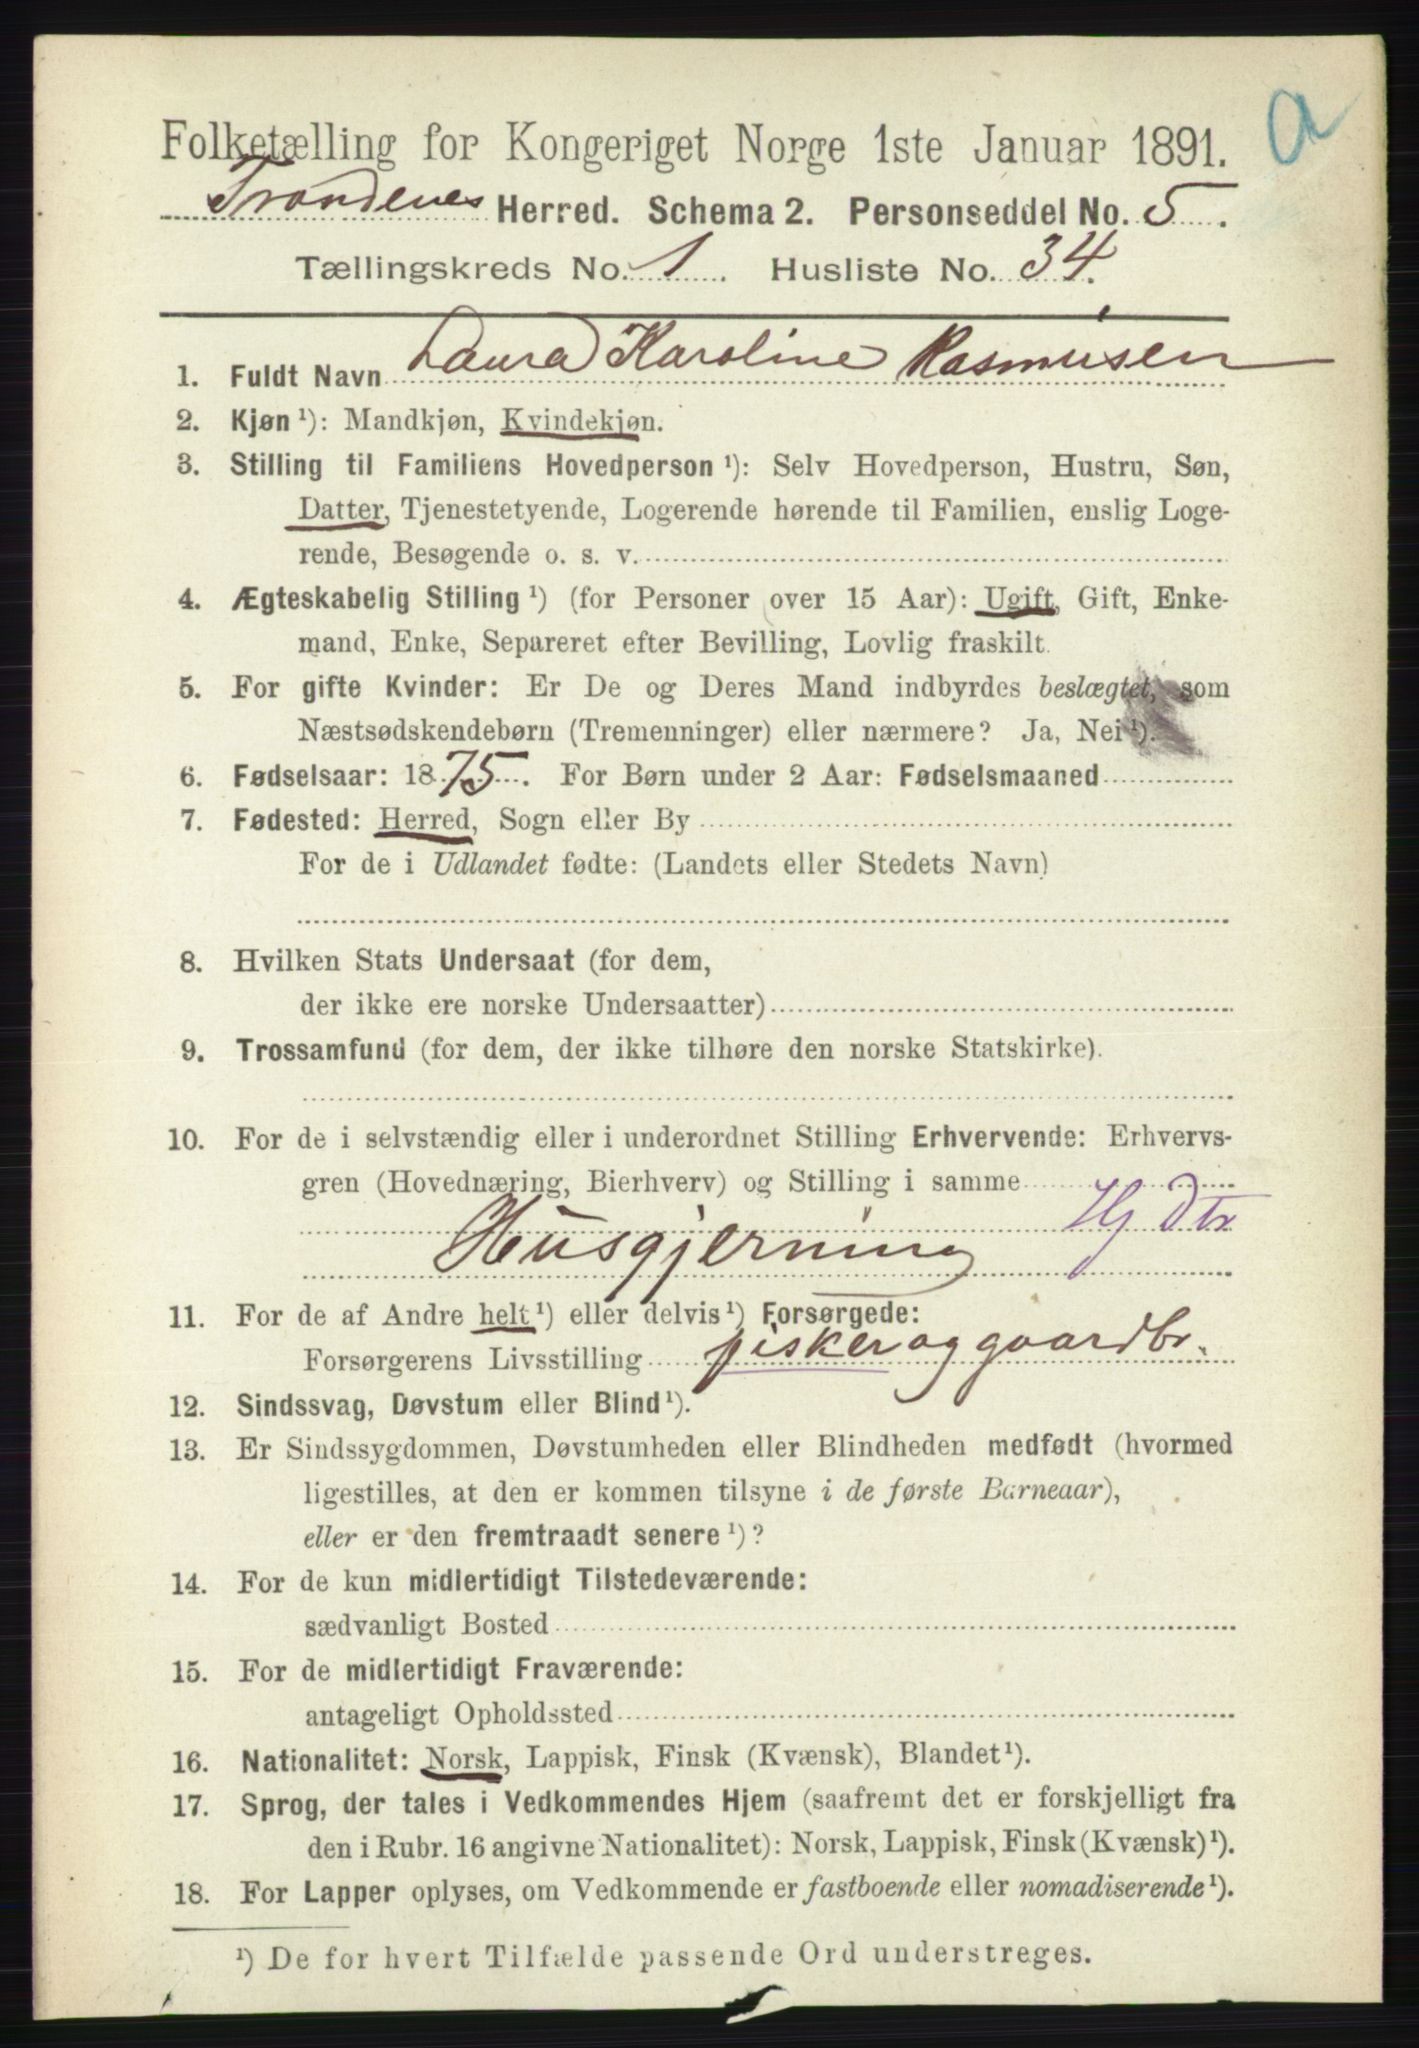 a
Folketælling for Kongeriget Norge 1ste Januar 1891.
Trondenes Herred. Schema 2. Personseddel No. 5.
Tællingskreds No. 1. Husliste No. 34.
1. Fuldt Navn Laura Karoline Rasmusen
2. Kjøn ¹): Mandkjøn, Kvindekjøn.
3. Stilling til Familiens Hovedperson ¹): Selv Hovedperson, Hustru, Søn,
Datter, Tjenestetyende, Logerende hørende til Familien, enslig Loge-
rende, Besøgende o. s. v.
4. Ægteskabelig Stilling ¹) (for Personer over 15 Aar): Ugift, Gift, Enke-
mand, Enke, Separeret efter Bevilling, Lovlig fraskilt.
5. For gifte Kvinder: Er De og Deres Mand indbyrdes beslægtet, som
Næstsødskendebørn (Tremenninger) eller nærmere? Ja, Nei ¹).
6. Fødselsaar: 1875. For Børn under 2 Aar: Fødselsmaaned
7. Fødested: Herred, Sogn eller By
For de i Udlandet fødte: (Landets eller Stedets Navn)
8. Hvilken Stats Undersaat (for dem,
der ikke ere norske Undersaatter)
9. Trossamfund (for dem, der ikke tilhøre den norske Statskirke).
10. For de i selvstændig eller i underordnet Stilling Erhvervende: Erhvervs-
gren (Hovednæring, Bierhverv) og Stilling i samme
Husgjerning Hj Dtr
11. For de af Andre helt ¹) eller delvis ¹) Forsørgede:
Forsørgerens Livsstilling fisker og gaardbr.
12. Sindssvag, Døvstum eller Blind ¹).
13. Er Sindssygdommen, Døvstumheden eller Blindheden medfødt (hvormed
ligestilles, at den er kommen tilsyne i de første Barneaar),
eller er den fremtraadt senere ¹)?
14. For de kun midlertidigt Tilstedeværende:
sædvanligt Bosted
15. For de midlertidigt Fraværende:
antageligt Opholdssted
16. Nationalitet: Norsk, Lappisk, Finsk (Kvænsk), Blandet ¹).
17. Sprog, der tales i Vedkommendes Hjem (saafremt det er forskjelligt fra
den i Rubr. 16 angivne Nationalitet): Norsk, Lappisk, Finsk (Kvænsk) ¹).
18. For Lapper oplyses, om Vedkommende er fastboende eller nomadiserende ¹).
¹) De for hvert Tilfælde passende Ord understreges.